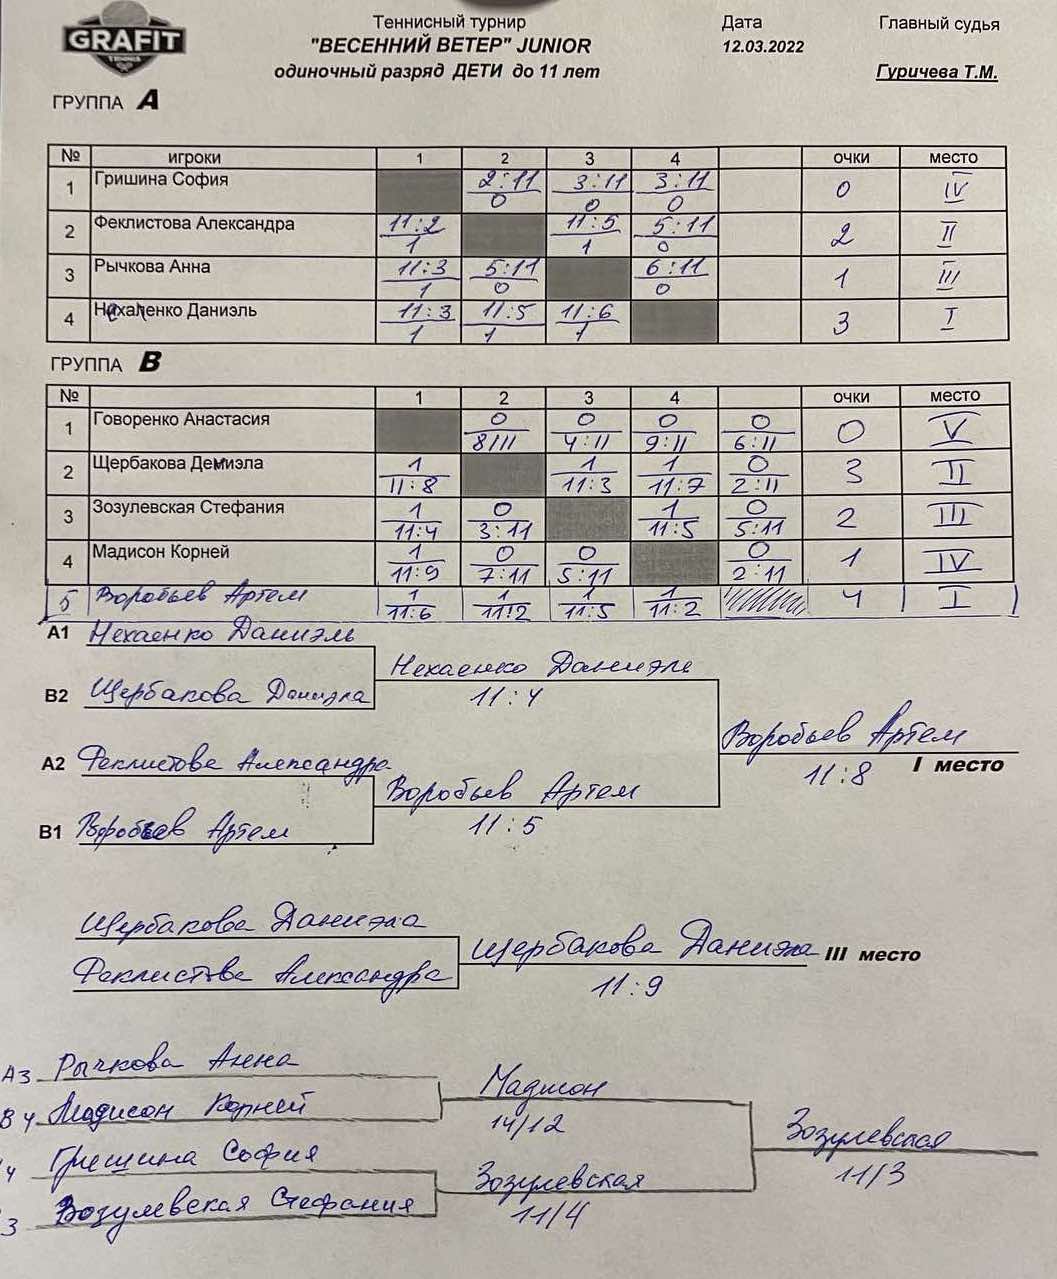 GRAFIT
TENNIS
Теннисный турнир
"ВЕСЕННИЙ ВЕТЕР" JUNIOR
одиночный разряд ДЕТИ до 11 лет
Дата
12.03.2022
Главный судья
Гуричева Т.М.
ГРУППА A
№ игроки 1 2 3 4 очки место
1 Гришина София 2:11/0 3:11/0 3:11/0 0 IV
2 Феклистова Александра 11:2/1 11:5/1 5:11/0 2 II
3 Рычкова Анна 11:3/1 5:11/0 6:11/0 1 III
4 Нехаенко Даниэль 11:3/1 11:5/1 11:6/1 3 I
ГРУППА B
№ 1 2 3 4 очки место
1 Говоренко Анастасия 0/8:11 0/4:11 0/9:11 0/6:11 0 V
2 Щербакова Даниэла 1/11:8 1/11:3 1/11:7 0/2:11 3 II
3 Зозулевская Стефания 1/11:4 0/3:11 1/11:5 0/5:11 2 III
4 Мадисон Корней 1/11:9 0/7:11 0/5:11 0/2:11 1 IV
5 Воробьев Артем 1/11:6 1/11:2 1/11:5 1/11:2 4 I
A1 Нехаенко Даниэль
Нехаенко Даниэль
B2 Щербакова Даниэла
11:4
Воробьев Артем
I место
11:8
A2 Феклистова Александра
Воробьев Артем
B1 Воробьев Артем
11:5
Щербакова Даниэла
Щербакова Даниэла III место
Феклистова Александра
11:9
A3 Рычкова Анна
Мадисон
B4 Мадисон Корней
14/12
Зозулевская
11/3
4 Гришина София
Зозулевская
3 Зозулевская Стефания
11/4